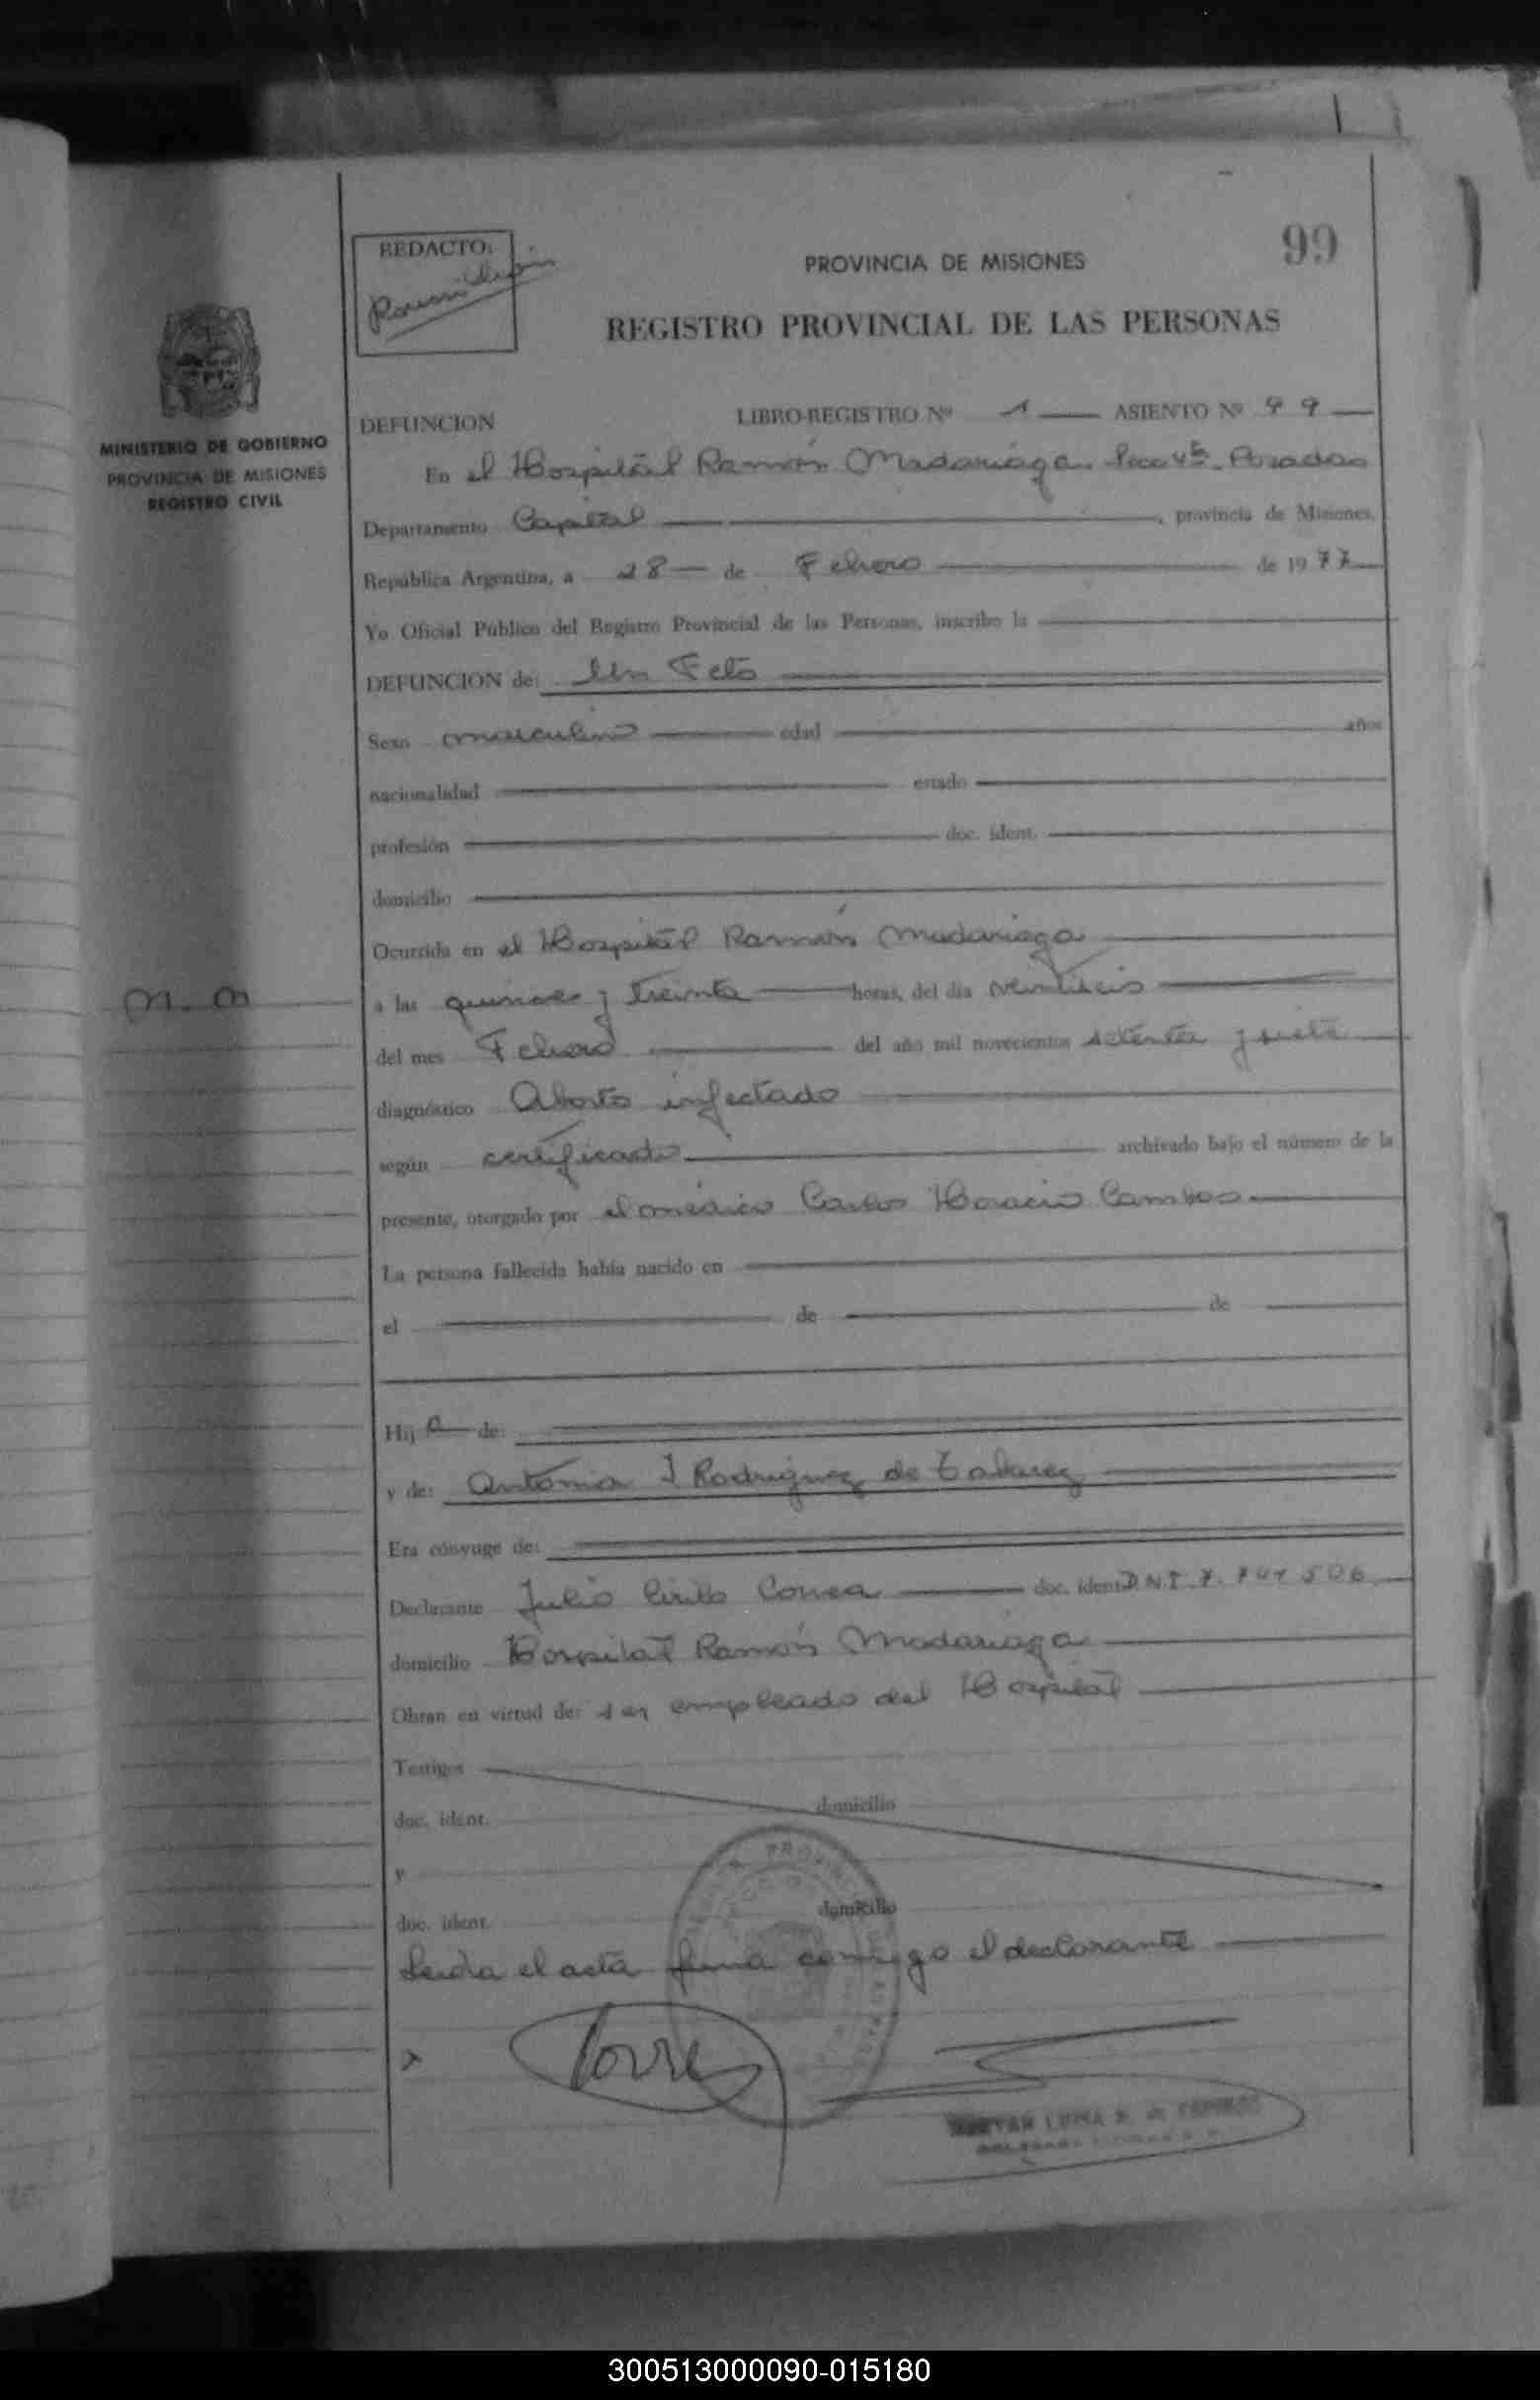 99
REDACTO:
PROVINCIA DE MISIONES
REGISTRO PROVINCIAL DE LAS PERSONAS
MINISTERIO DE GOBIERNO
PROVINCIA DE MISIONES
REGISTRO CIVIL
DEFUNCION LIBRO-REGISTRO Nº 1 ASIENTO Nº 99
En el Hospital Ramón Madariaga Secc 4ª Posadas
Departamento Capital, provincia de Misiones,
República Argentina, a 28 de Febrero de 1977
Yo Oficial Público del Registro Provincial de las Personas, inscribo la
DEFUNCION de: Un Feto
Sexo masculino edad años
nacionalidad estado
profesión doc. ident.
domicilio
Ocurrida en el Hospital Ramón Madariaga
a las quince y treinta horas, del día veintiseis
del mes Febrero del año mil novecientos setenta y siete
diagnóstico Aborto infectado
según certificado archivado bajo el número de la
presente, otorgado por el médico Carlos Horacio
La persona fallecida había nacido en
el de de
Hij o de:
y de: Antonia I Rodriguez de
Era cónyuge de:
Declarante Julio Cirilo Correa doc. ident D.N.I. 7.
domicilio Hospital Ramón Madariaga
Obran en virtud de: ser empleado del Hospital
Testigos
doc. ident. domicilio
y
doc. ident. domicilio
Leida el acta firma conmigo el declarante
300513000090-015180